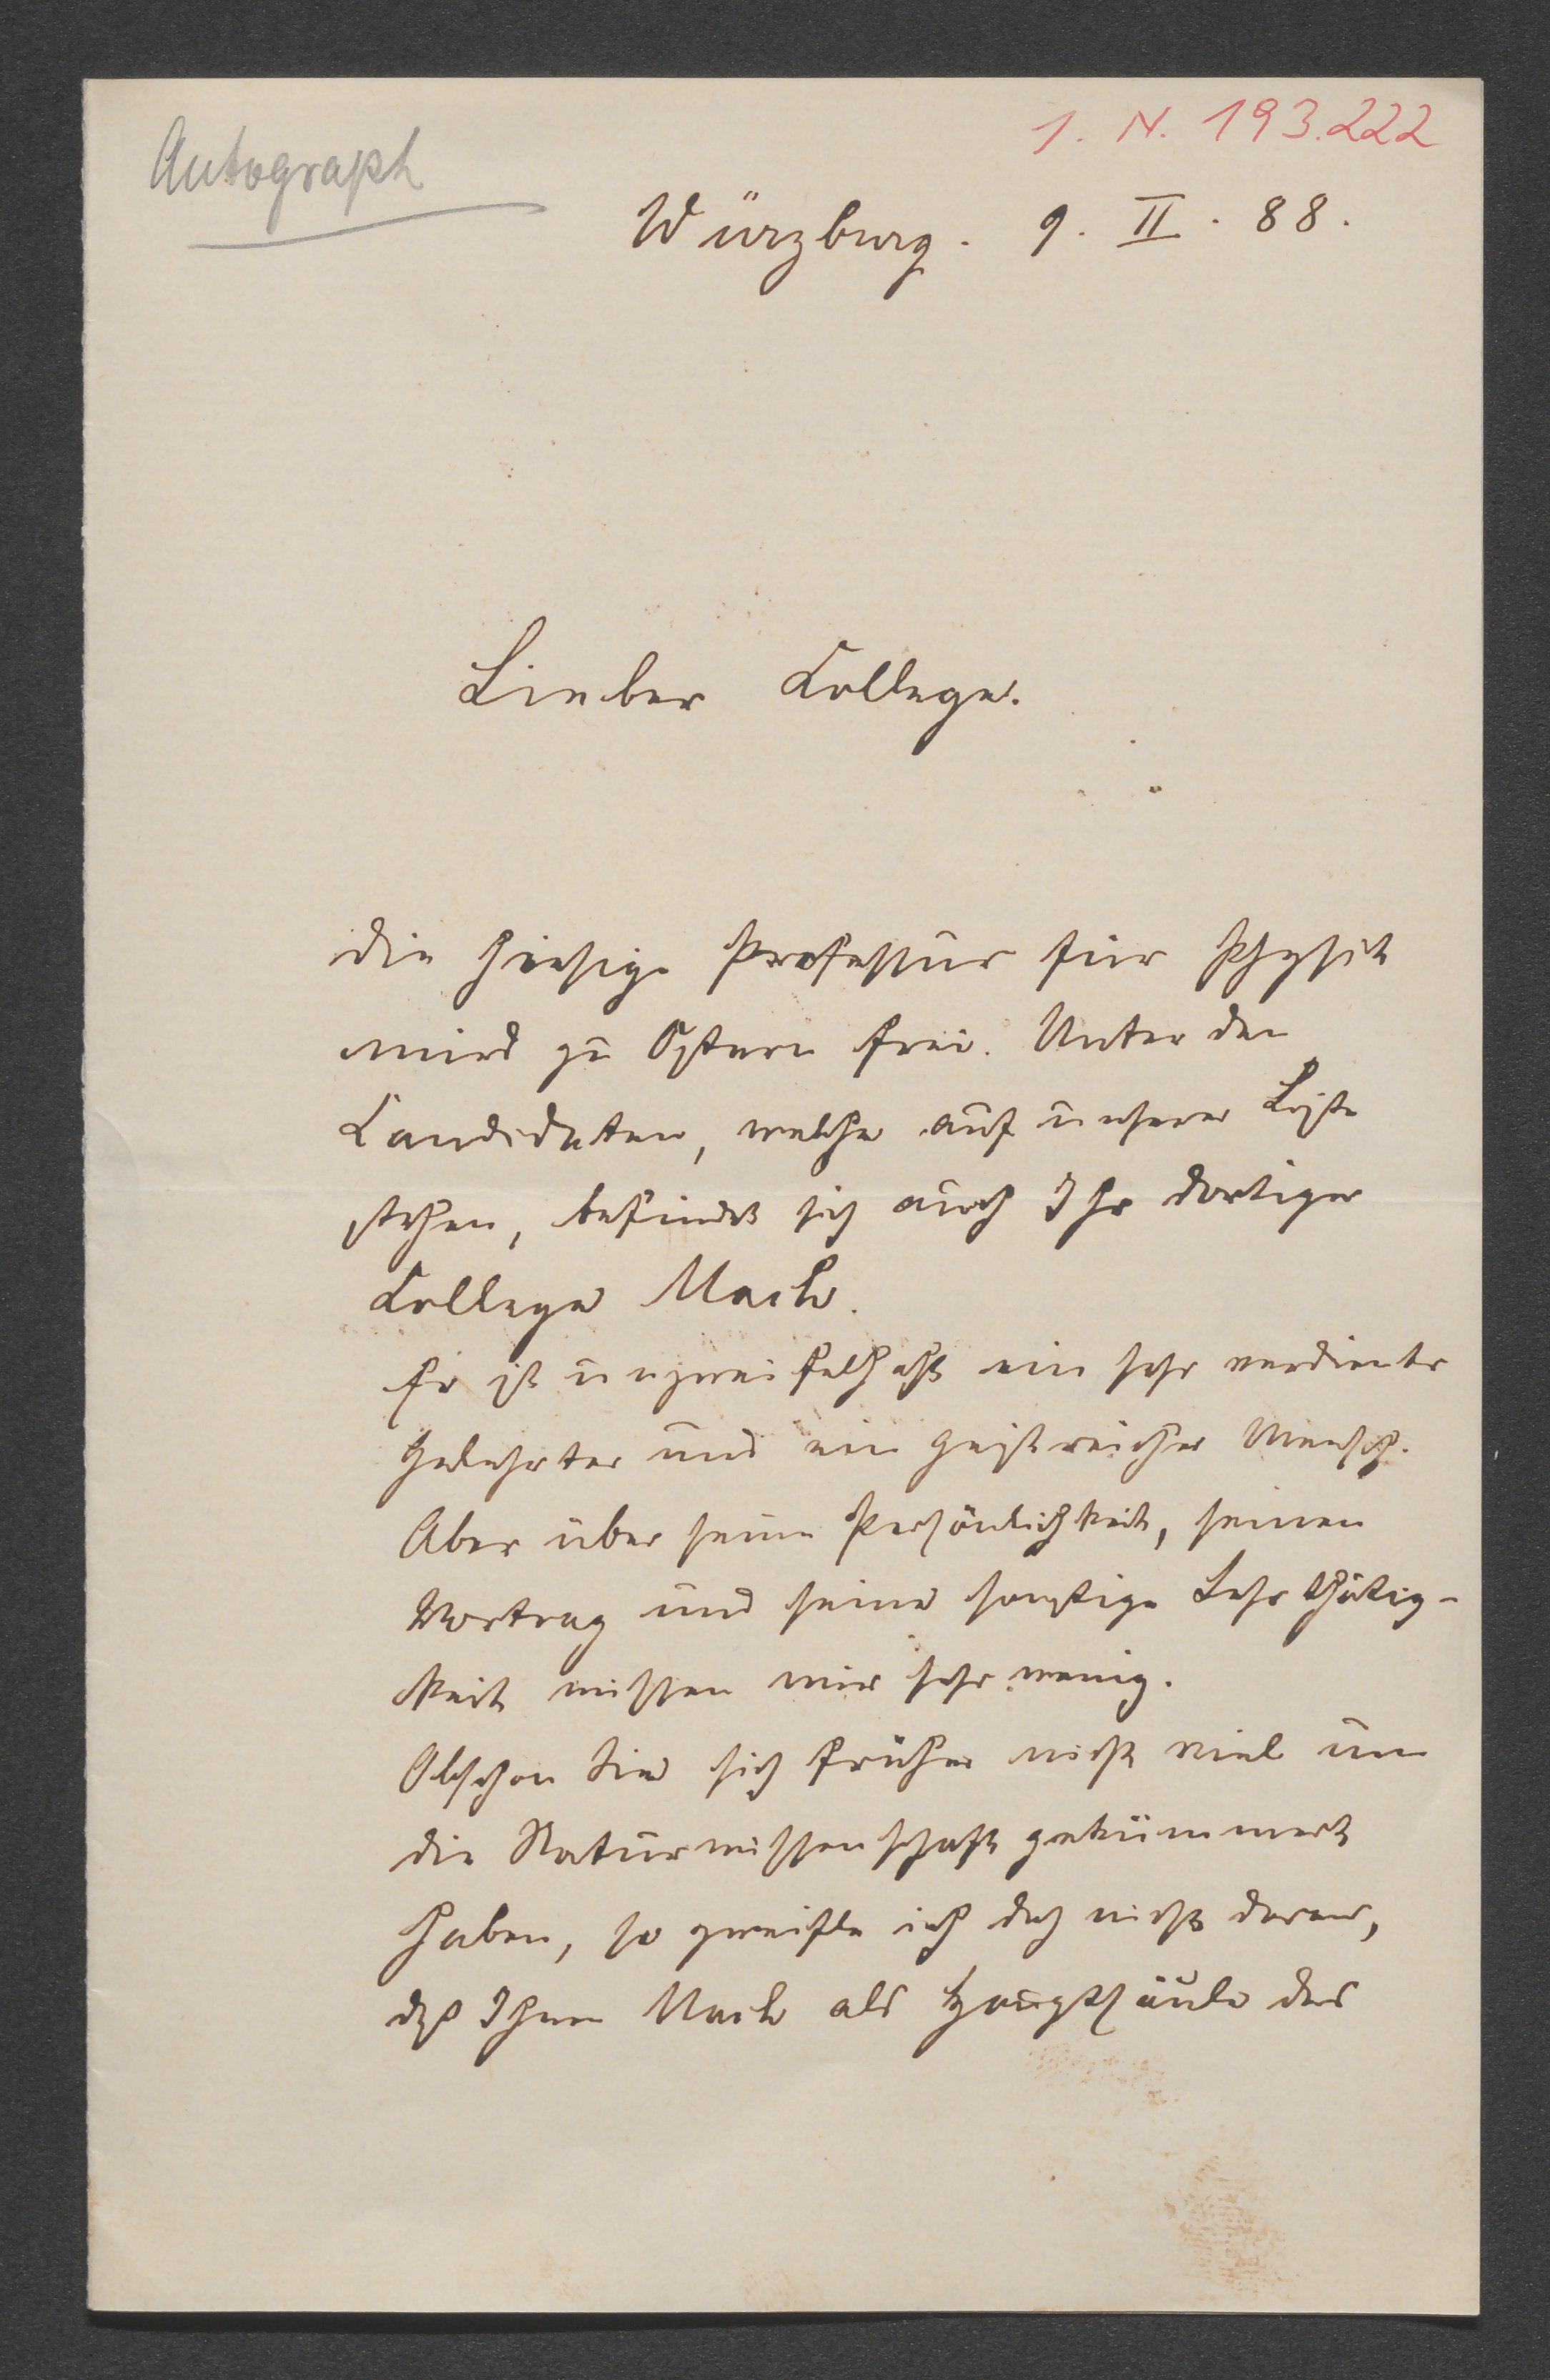 Autograph
I. N. 193.222
Würzburg. 9. II. 88.
Lieber College.
die hiesige Professur für Physik
wird zu Ostern frei. Unter den
Candidaten, welche auf unserer Liste
stehen, befindet sich auch Ihr dortiger
College Mach.
Er ist unzweifelhaft ein sehr verdienter
Gelehrter und ein geistreicher Mensch.
Aber über seine Persönlichkeit, seinen
Vortrag und seine sonstige Lehrthätig-
keit wissen wir sehr wenig.
Obschon Sie sich früher nicht viel um
die Naturwissenschaft gekümmert
haben, so zweifle ich doch nicht daran,
daß Ihnen Mach als Hauptsäule des